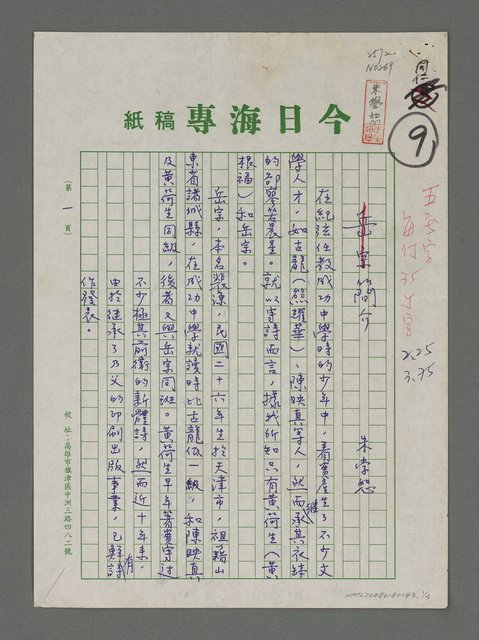 25/2
NO269
同仁
9
朱學恕
今日海專稿紙
五号字
每行35个字
2.25
3.35
岳宗簡介
朱學恕
在紀弦任教成功中學時的少年中，着實產生了不少文
學人才，如古龍（熊耀華）、陳映真等人，然而繼承其衣缽
的卻寥若晨星。就以寫詩而言，據我所知只有黃荷生（黃
根福）和岳宗。
岳宗，本名裴源，民國二十六年生於天津市，祖籍山
東省諸城縣，在成功中學就讀時比古龍低一級，和陳映真
及黃荷生同級，後者又與岳宗同班。黃荷生早年著實寫過
不少極其前衛的新體詩，然而近十年來，
由於繼承了乃父的印刷出版事業，已鮮有詩
作發表。
（第一頁）
校址：高雄市旗津區中洲三路四八二號
NMTL20086180243, 1/3